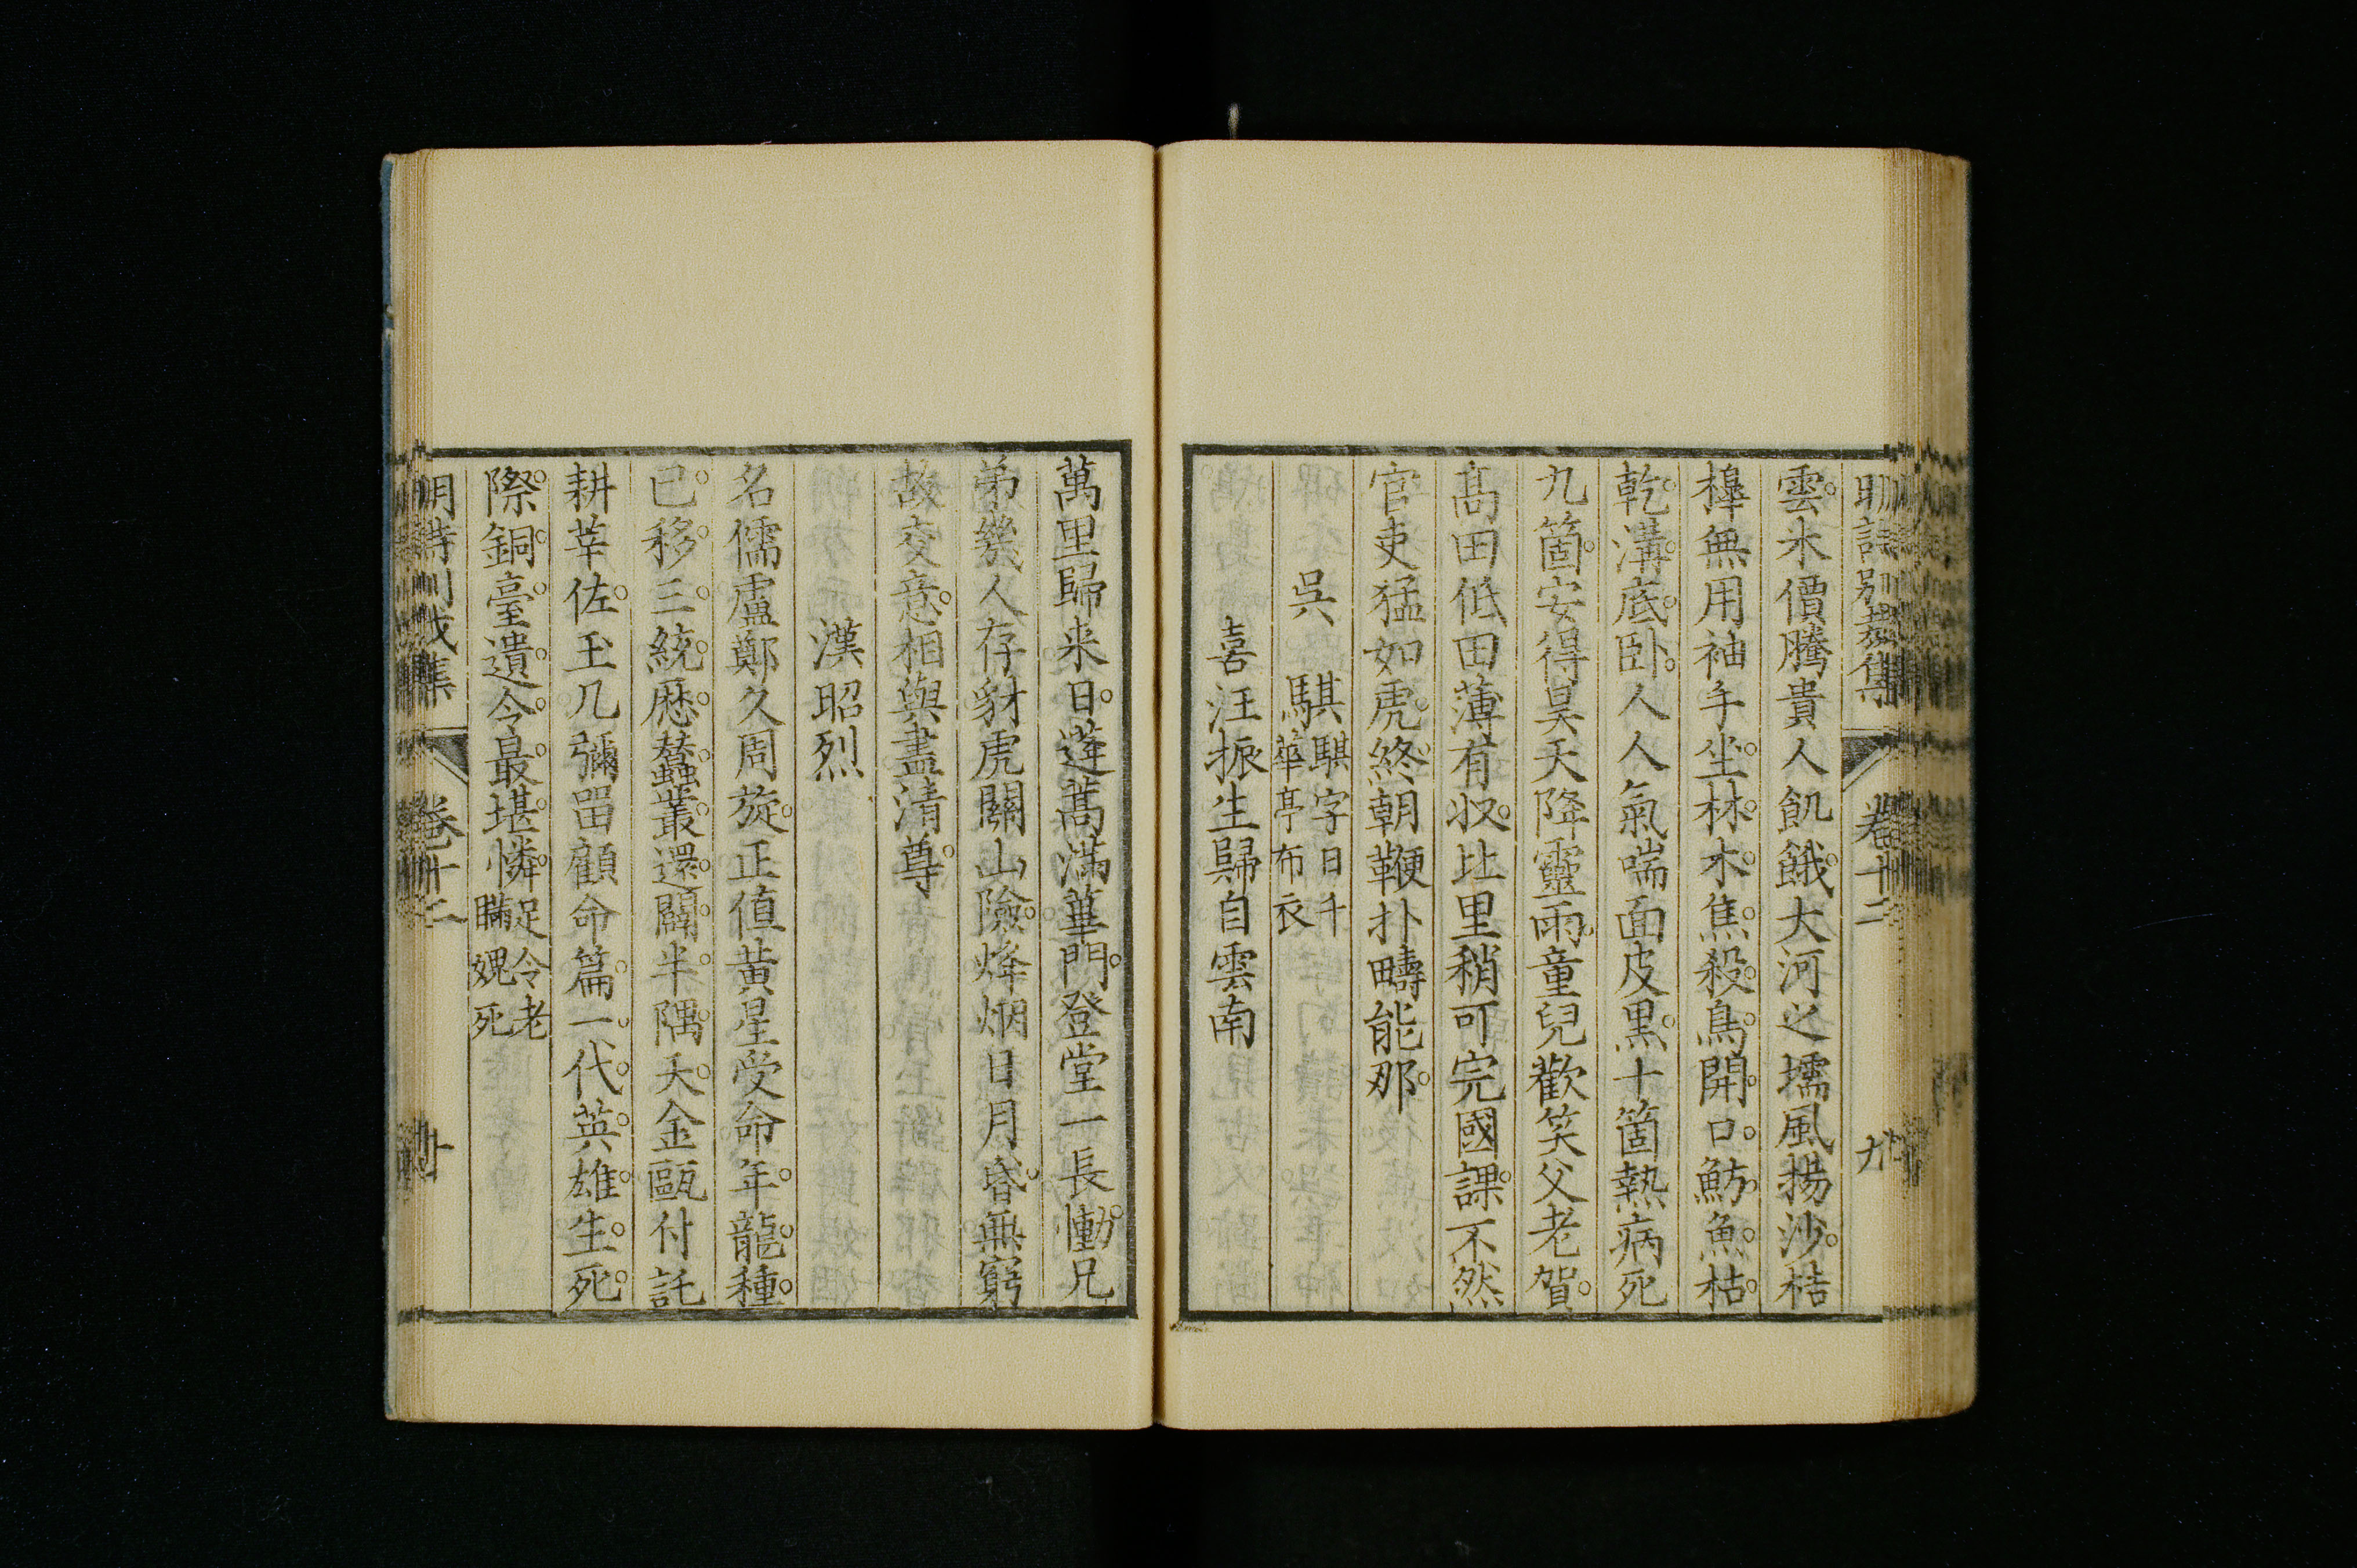 明詩別裁集 卷十二 九
雲米價騰貴人飢餓大河之壖風揚沙桔
橰無用袖手坐林木焦殺鳥開口魴魚枯
乾溝底卧人人氣喘面皮黑十箇熱病死
九箇安得昊天降靈雨童兒歡笑父老賀
髙田低田薄有收比里稍可完國課不然
官吏猛如虎終朝鞭扑疇能那
吳騏 騏字日千華亭布衣
喜汪振生歸自雲南
萬里歸来日蓬蒿滿蓽門登堂一長慟兄
弟幾人存豺虎關山險烽烟日月昏無窮
故交意相與盡清尊
漢昭烈
名儒盧鄭久周旋正值黃星受命年龍種
已移三統厯蠶叢還闢半隅天金甌付託
耕莘佐玉几彌畱顧命篇一代英雄生死
際銅臺遺令最堪憐 足令老瞞媿死
明詩別裁集 卷十二 十